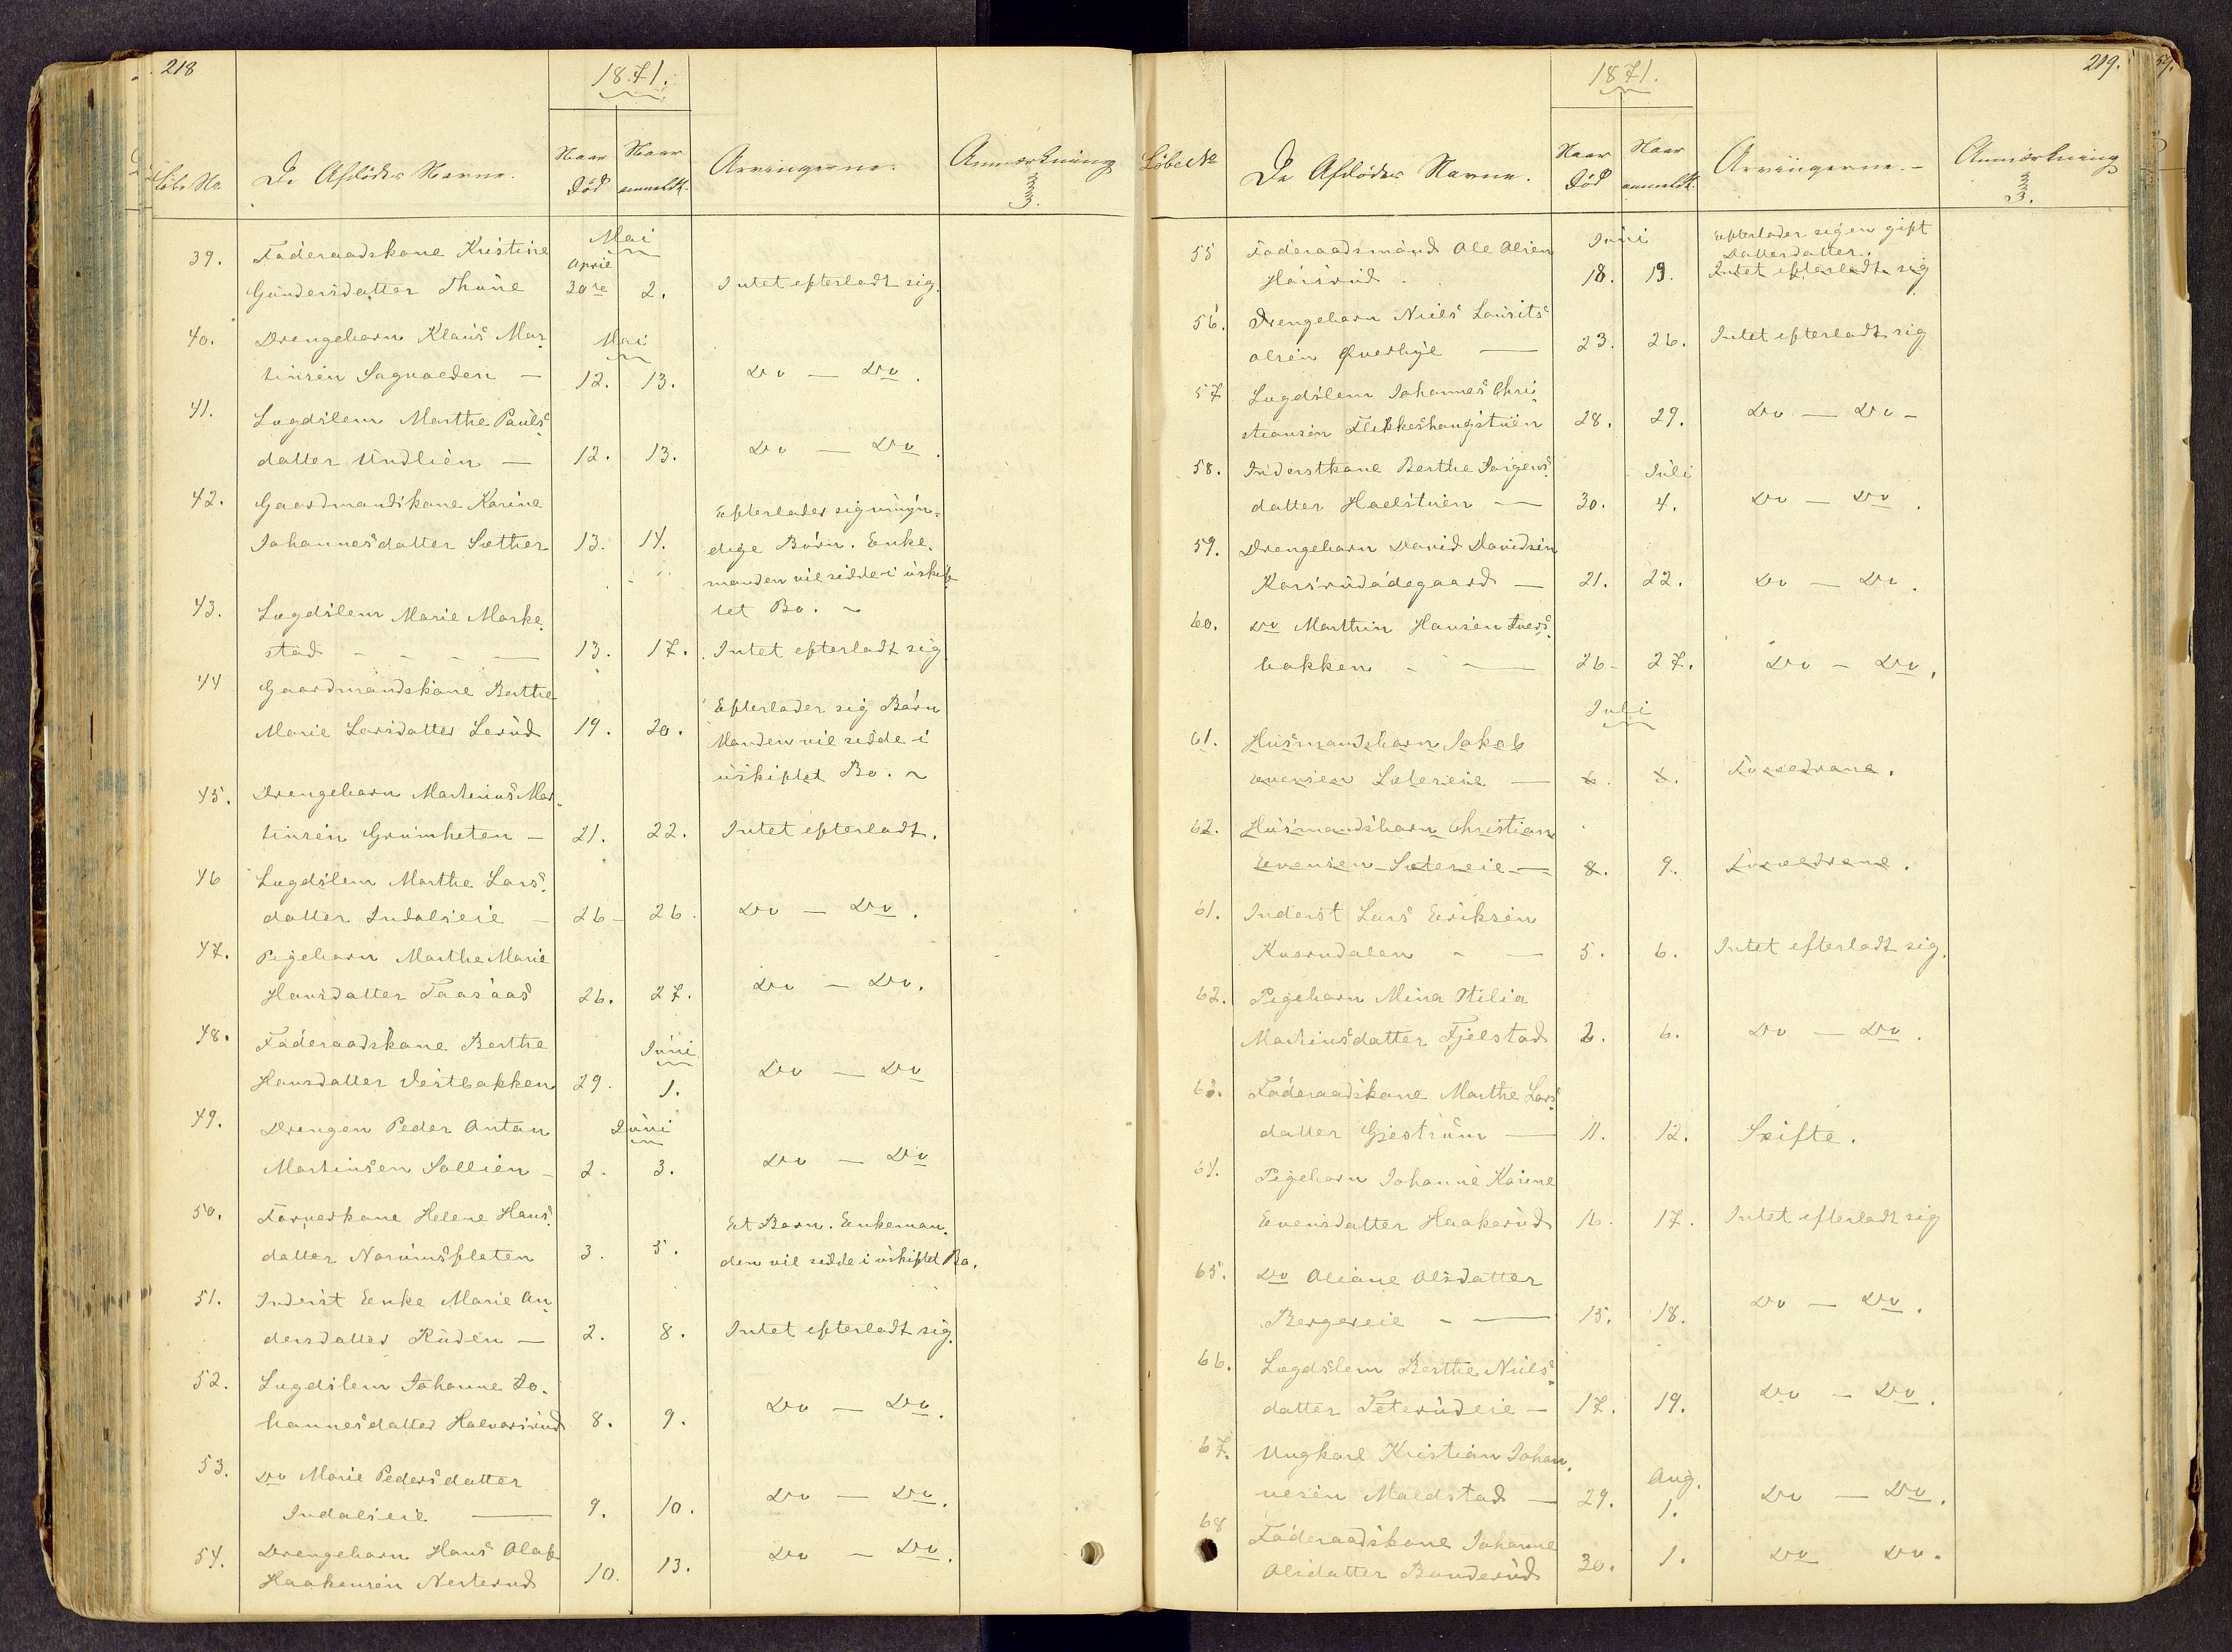 218
1871.
Löbe No. De Afdödes Navne. Naar Död Naar anmeldt. Arvingerne. Anmærkning
39. Föderaadskone Kristine Mai
April
Gundersdatter Thune 30te 2. Intet efterladt sig.
40. Drengebarn Klaus Mar- Mai
tinsen Sagvolden — 12. 13. Do — Do.
41. Lægdslem Marthe Pauls-
datter Undlien — 12. 13. Do — Do.
42. Gaardmandskone Karine Efterlader sig myn-
Johannesdatter Sæther 13. 14. dige Börn. Enke-
manden vil sidde i uskif-
43. Lægdslem Marie Marke- tet Bo. ~
stad - - - — 13. 17. Intet efterladt sig
44 Gaardmandskone Berthe Efterlader sig Börn
Marie Larsdatter Lerud 19. 20. Manden vil sidde i
uskiftet Bo. ~
45. Drengebarn Martinus Mar-
tinsen Grimheten — 21. 22. Intet efterladt.
46 Lægdslem Marthe Lars-
datter Indalseie — 26- 26. Do — Do.
47. Pigebarn Marthe Marie
Hansdatter Taasaas 26. 27. Do — Do.
48. Föderaadskone Berthe Juni
Hansdatter Vestbakken 29. 1. Do — Do
49. Drengen Peder Anton Juni
Martinsen Sollien - 2. 3. Do — Do
50. Farverkone Helene Hans- Et Barn. Enkeman-
datter Narumsfloten 3. 5. den vil sidde i uskiftet Bo.
51. Inderst Enke Marie An-
dersdatter Ruden — 2. 8. Intet efterladt sig.
52. Lægdslem Johanne Jo-
hannesdatter Halvorsrud 8. 9. Do — Do.
53. Do Marie Pedersdatter
Indalseie — 9. 10. Do — Do.
54. Drengebarn Hans Olaf
Haakensen Nesterud 10. 13. Do — Do.
219.
1871.
Löbe No De Afdödes Navne. Naar Död Naar anmeldt. Arvingerne. - Anmærkning
55 Föderaadsmand Ole Olsen Juni Efterlader sig en gift
Datterdatter.
Horsrud. 18. 19. Intet efterladt sig
56. Drengebarn Niels Laurits
Olsen Qverhye — 23. 26. Intet efterladt sig
57 Lægdslem Johannes Chri-
stiansen Flikkeshaugstuen 28. 29. Do — Do -
58. Inderstkone Berthe Jörgens- Juli
datter Haelstuen — 30. 4. Do — Do.
59. Drengebarn David Davidsen
Karsrudödegaard — 21. 22. Do — Do.
60. Do Marthin Hansen Tvers-
bakken - — 26- 27. Do — Do.
Juli
61. Husmandsbarn Jakob
Evensen Sætereie — 6. 8. Forældrene.
62. Husmandsbarn Christian
Evensen Sætereie — 8. 9. Forældrene.
61. Inderst Lars Eriksen
Kverndalen - — 5. 6. Intet efterladt sig.
62. Pigebarn Mina Otilia
Martinsdatter Fjelstad 2. 6. Do — Do.
63. Föderaadskone Marthe Lars-
datter Gjestrum — 11. 12. Skifte.
64. Pigebarn Johanne Karine
Evensdatter Haakerud 16. 17. Intet efterladt sig
65. Do Oliane Olsdatter
Bergereie - — 15. 18. Do — Do.
66. Lægdslem Berthe Niels-
datter Teterudeie — 17. 19. Do — Do.
67. Ungkarl Kristian Johan- Aug.
nesen Moldstad — 29. 1. Do — Do.
68 Föderaadskone Johanne
Olsdatter Banderud 30. 1. Do Do.